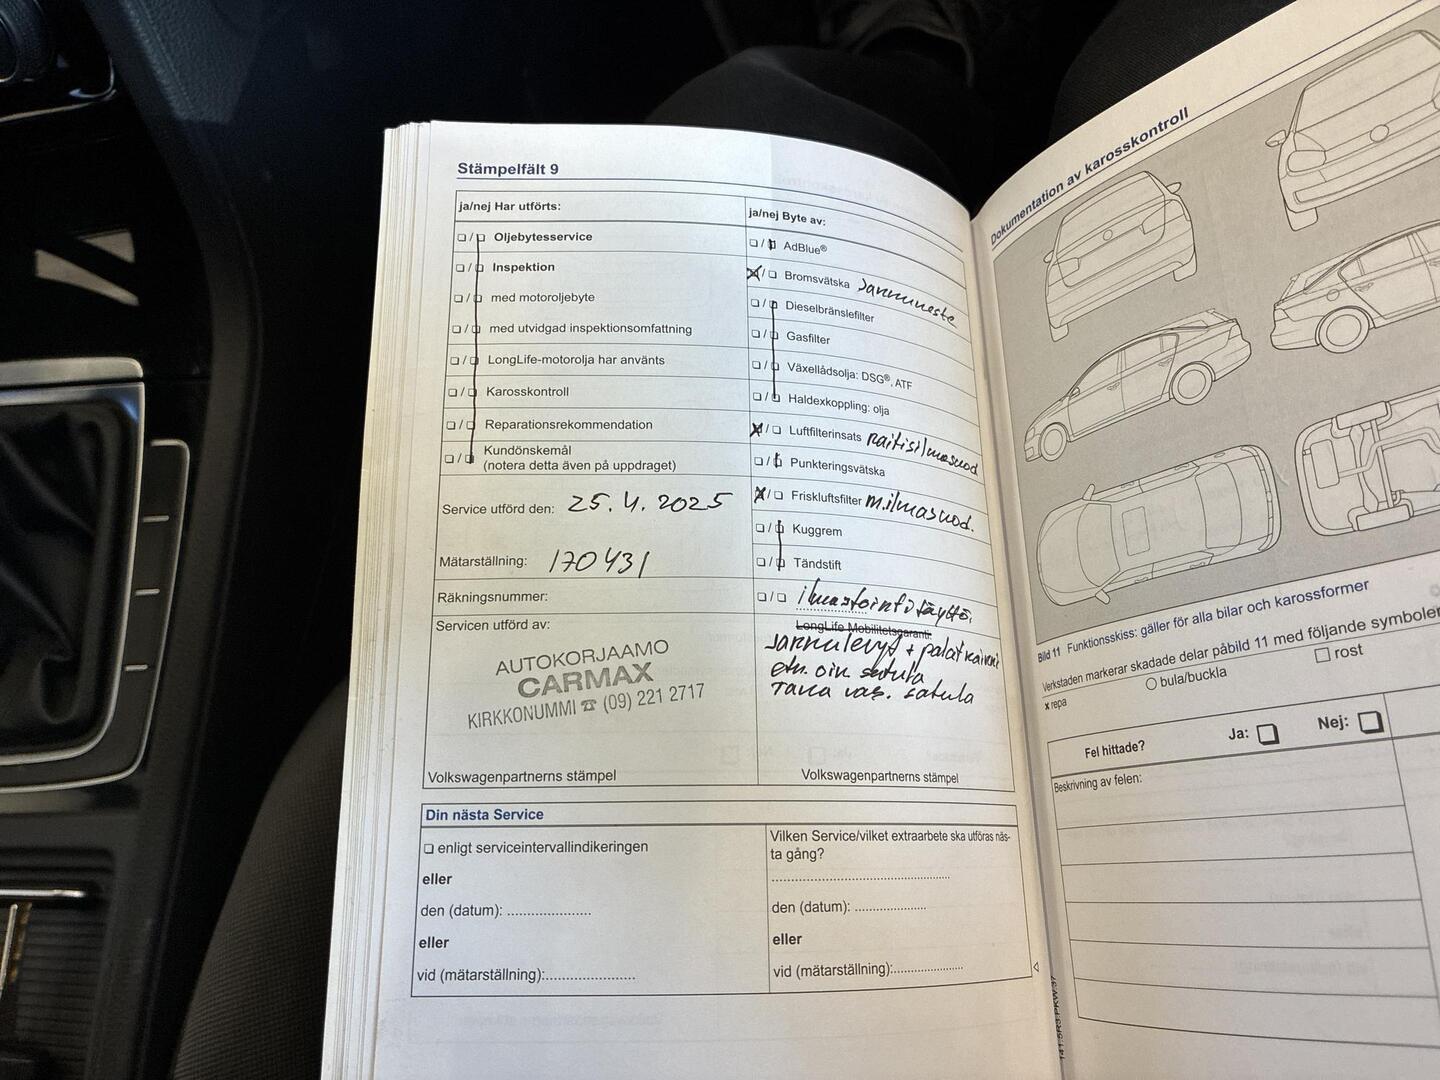 Stämpelfält 9
ja/nej Har utförts:
Oljebytesservice
Inspektion
med motoroljebyte
med utvidgad inspektionsomfattning
LongLife-motorolja har använts
Karosskontroll
Reparationsrekommendation
Kundönskemål
(notera detta även på uppdraget)
Service utförd den: 25.4.2025
Mätarställning: 170431
Räkningsnummer:
Servicen utförd av:
AUTOKORJAAMO
CARMAX
KIRKKONUMMI ☎ (09) 221 2717
Volkswagenpartnerns stämpel
ja/nej Byte av:
AdBlue®
Bromsvätska Jarruneste
Dieselbränslefilter
Gasfilter
Växellådsolja: DSG®, ATF
Haldexkoppling: olja
Luftfilterinsats raitisilmasuod
Punkteringsvätska
Friskluftsfilter m.ilmasuod.
Kuggrem
Tändstift
ilmastointi täyttö.
LongLife Mobilitetsgaranti:
Jarrulevyt + palat
etu. oik. satula
Taka vas. satula
Volkswagenpartnerns stämpel
Din nästa Service
enligt serviceintervallindikeringen
eller
den (datum):
eller
vid (mätarställning):
Vilken Service/vilket extraarbete ska utföras näs-
ta gång?
den (datum):
eller
vid (mätarställning):
Dokumentation av karosskontroll
Bild 11 Funktionsskiss: gäller för alla bilar och karossformer
Verkstaden markerar skadade delar påbild 11 med följande symboler
x repa
bula/buckla
rost
Fel hittade?
Ja:
Nej:
Beskrivning av felen: